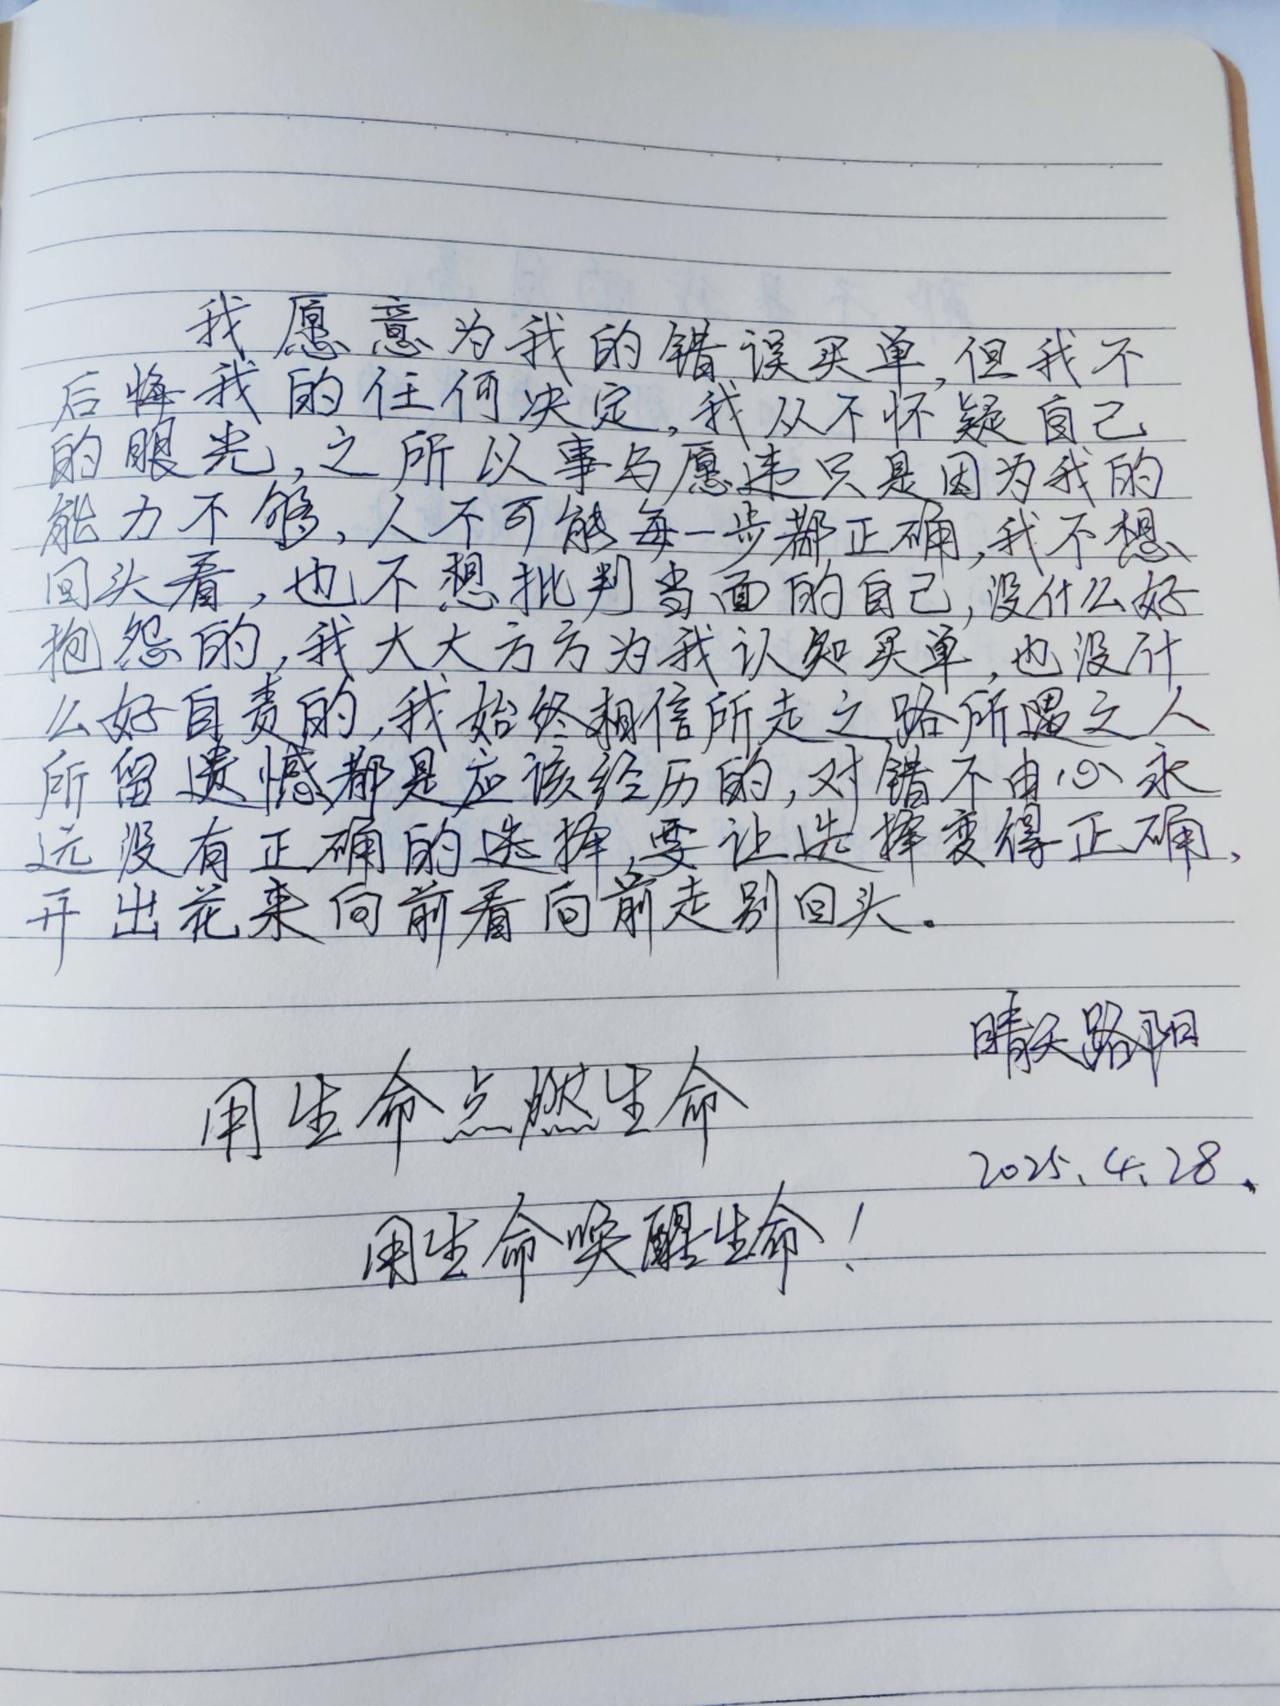 我愿意为我的错误买单,但我不
后悔我的任何决定,我从不怀疑自己
的眼光,之所以事与愿违只是因为我的
能力不够,人不可能每一步都正确,我不想
回头看,也不想批判当面的自己,没什么好
抱怨的,我大大方方为我认知买单,也没什
么好自责的,我始终相信所走之路所遇之人
所留遗憾都是应该经历的,对错不由心永
远没有正确的选择,要让选择变得正确、
开出花来向前看向前走别回头。
晴天路阳
用生命点燃生命
2025.4.28.
用生命唤醒生命!